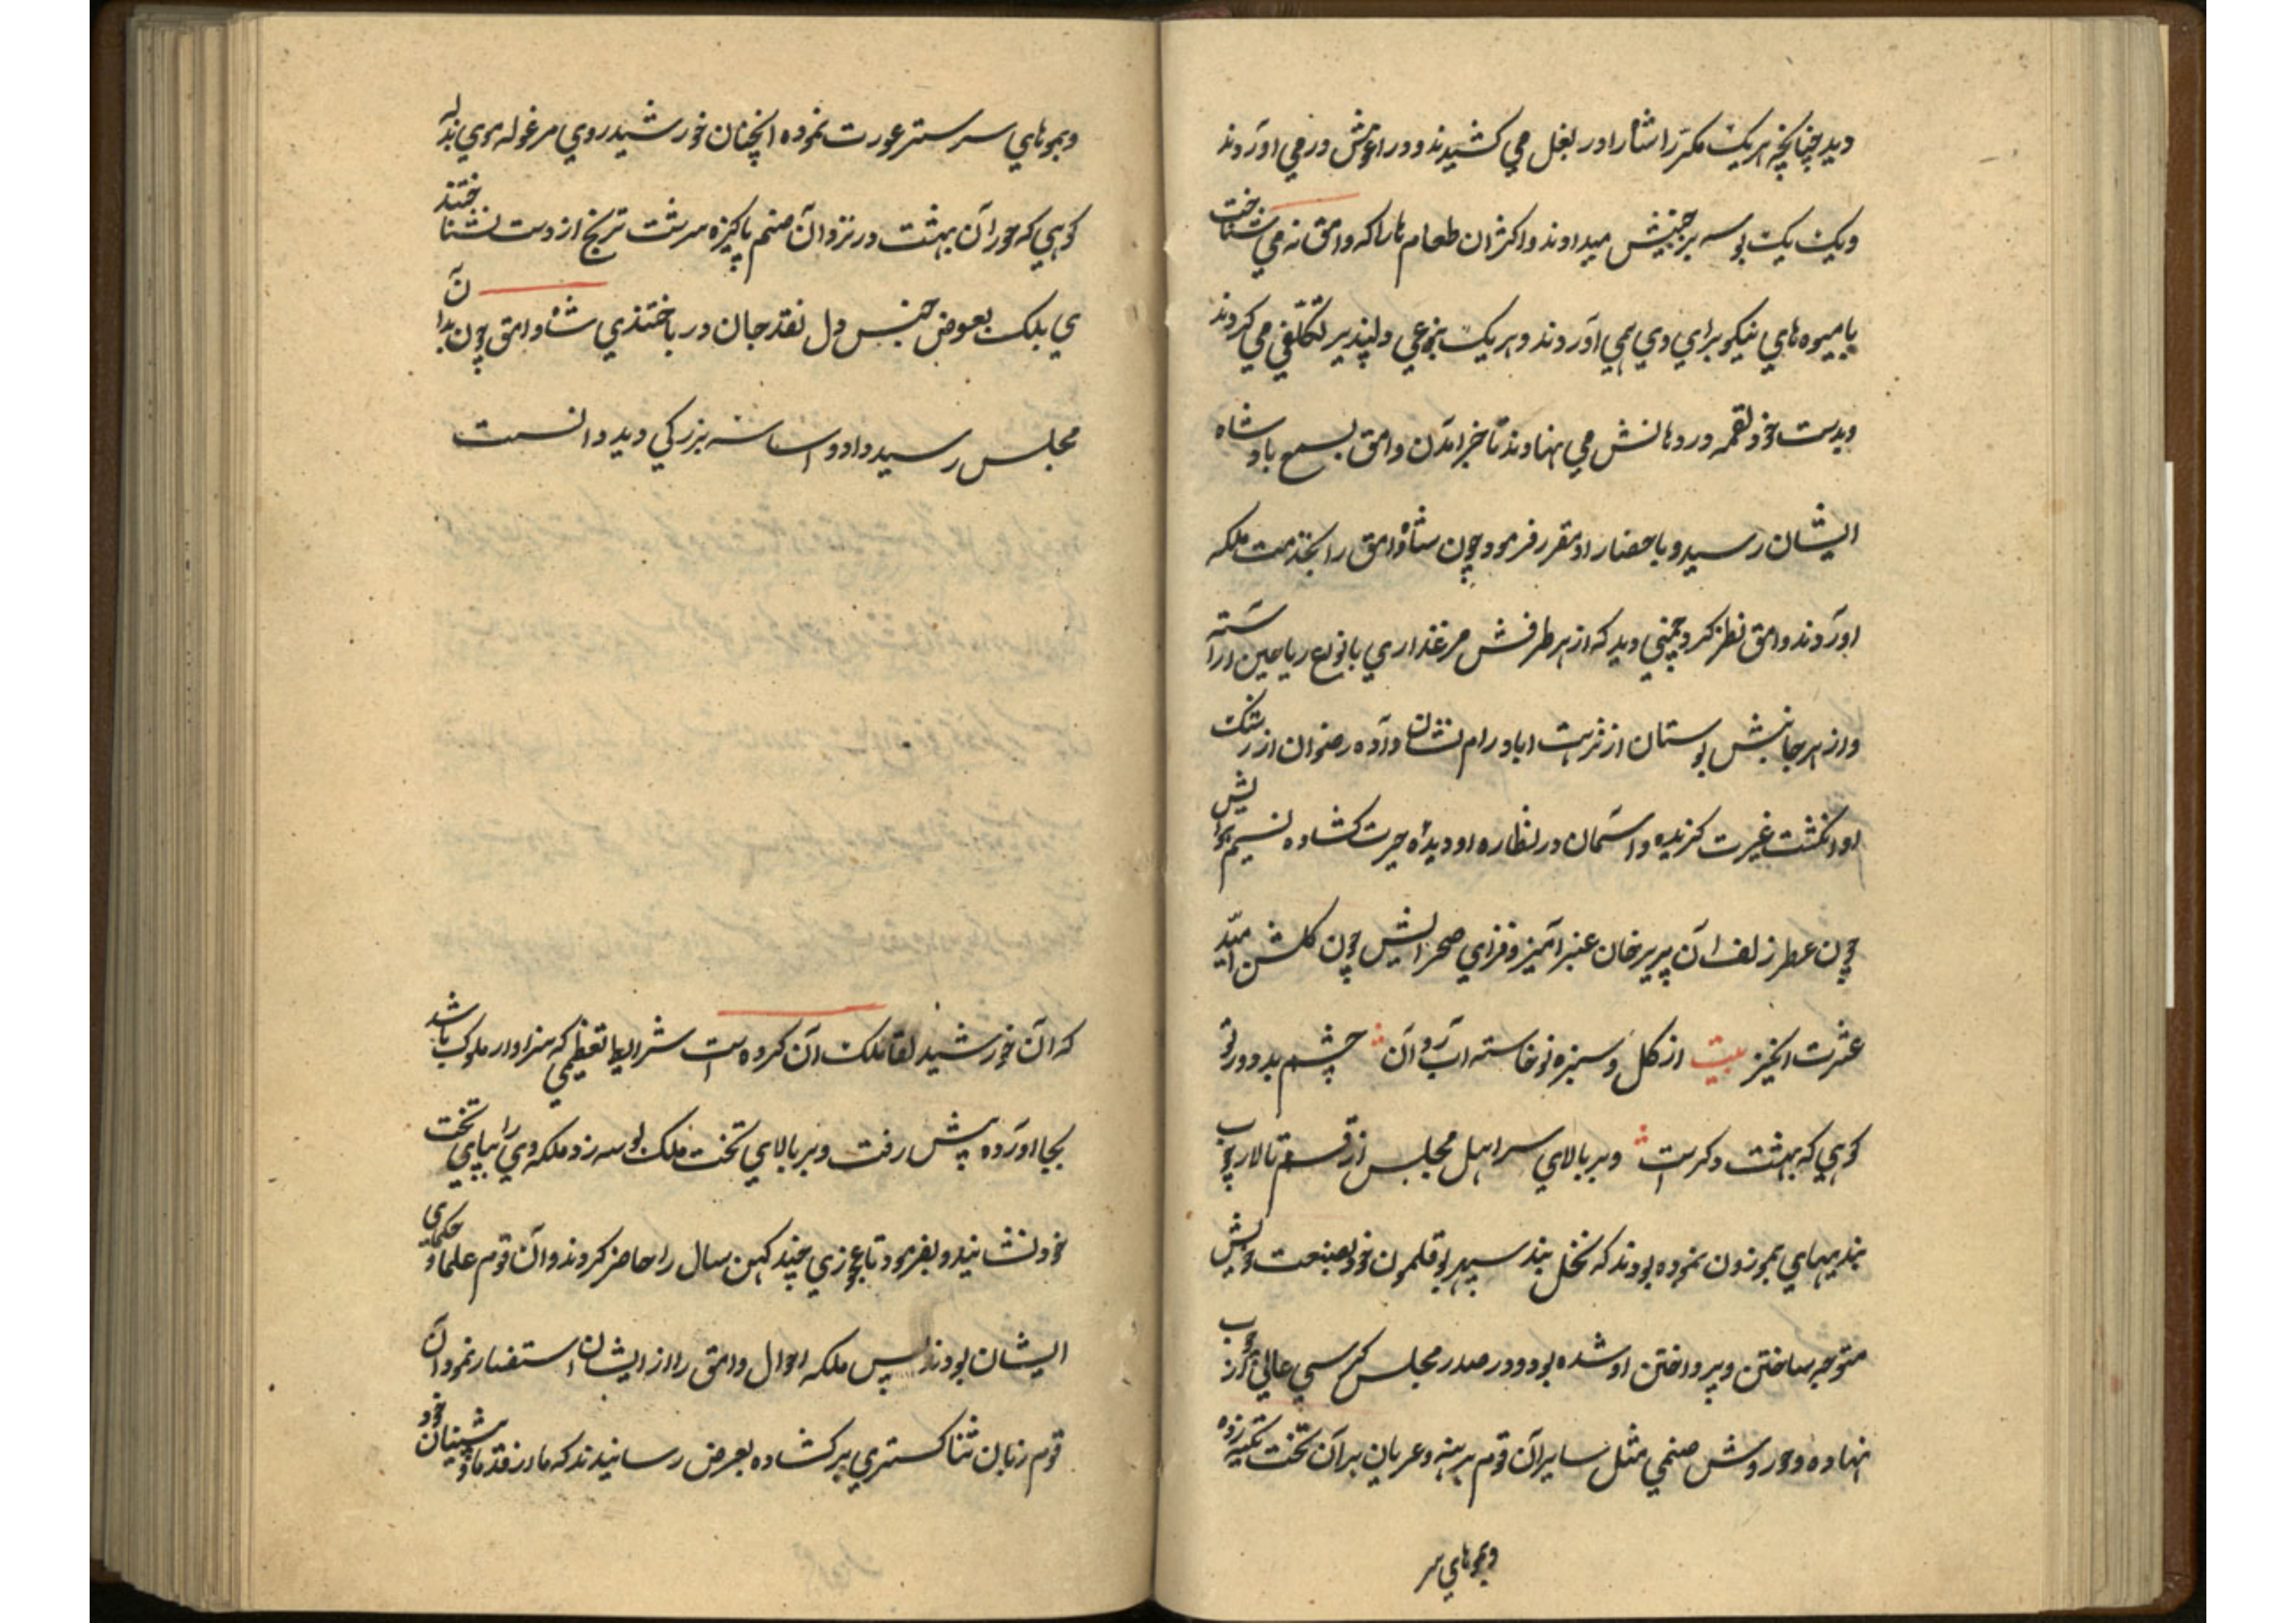 دید چنانچه هر یک مکرّر شاه را در بغل می کشیدند و در اغوش در می اوردند
و یک یک بوسه بر جبینش میدادند و اکثر ان طعام ها را که وامق نه می شناخت
با میوه های نیکو برای وی می آوردند و هر یک بنوعی دلپذیر تکلّفی می کردند
و بدست خود لقمه در دهانش می نهادند تا خبر امدن وامق بسمع بادشاه
ایشان رسید و باحضار او مقرر فرمود چون شاه وامق را بخدمت ملکه
اوردند وامق نظر کرد چمنی دید که از هر طرفش مرغذاری بانواع ریاحین اراسته
و از هر جانبش بوستان از نزهت اباد رام نشان داده رضوان از رشک
او انگشت غیرت گزیده و اسمان در نظاره او دیده حیرت کشاده نسیم هوایش
چون عطر زلف آن پریرخان عنبر آمیز و فزای صحرایش چون گلشن امّید
عشرت انگیز بیت از گل و سبزه نوخاسته اب روان چشم بد دور تو
گوهی که بهشت دگر است و بر بالای سرا هل مجلس از قسم تالار چوب
بندیهای بموزون نموده بودند که نخل بند سپهر بوقلمون خود بصنعت خویش
متوجه ساختن و پرداختن او شده بود و در صدر مجلس کرسی عالی از چوب
نهاده و حوروش صنمی مثل سایر آن قوم برهنه و عریان بر آن تخت تکیه زده
و بموهای سر
و بموهای سر ستر عورت نموده انچنان خورشید روی مرغوله موی بد
گوهی که حوران بهشت در نزد آن صنم پاکیزه سرشت ترنج از دست نشناختند
ی بلکه بعوض جنس دل نقد جان در باختندی شاه وامق چون بدان
مجلس رسید و اساسه بزرگی دید دانست
که آن خورشید لقا ملکت ان گروه است شرایط تعظیمی که سزاوار ملوک باشد
بجا اورده پیش رفت و بر بالای تخت ملک بوسه زد ملکه وی را بپای تخت
خود نشانید و بفرمود تا عجوزی چند کهن سال را حاضر کردند و آن قوم علما و حکمای
ایشان بودند پس ملکه احوال وامق را از ایشان استفسار نمود آن
قوم زبان ثنا گستری بر کشاده بعرض رسانیدند که ما از قدما و پیشینیان خود